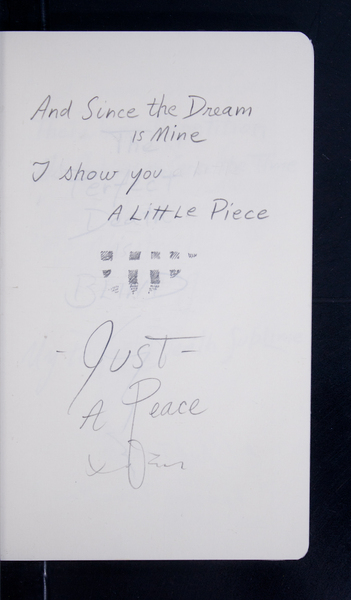 And Since the Dream
is Mine
I show you
A Little Piece
- Just -
A Peace